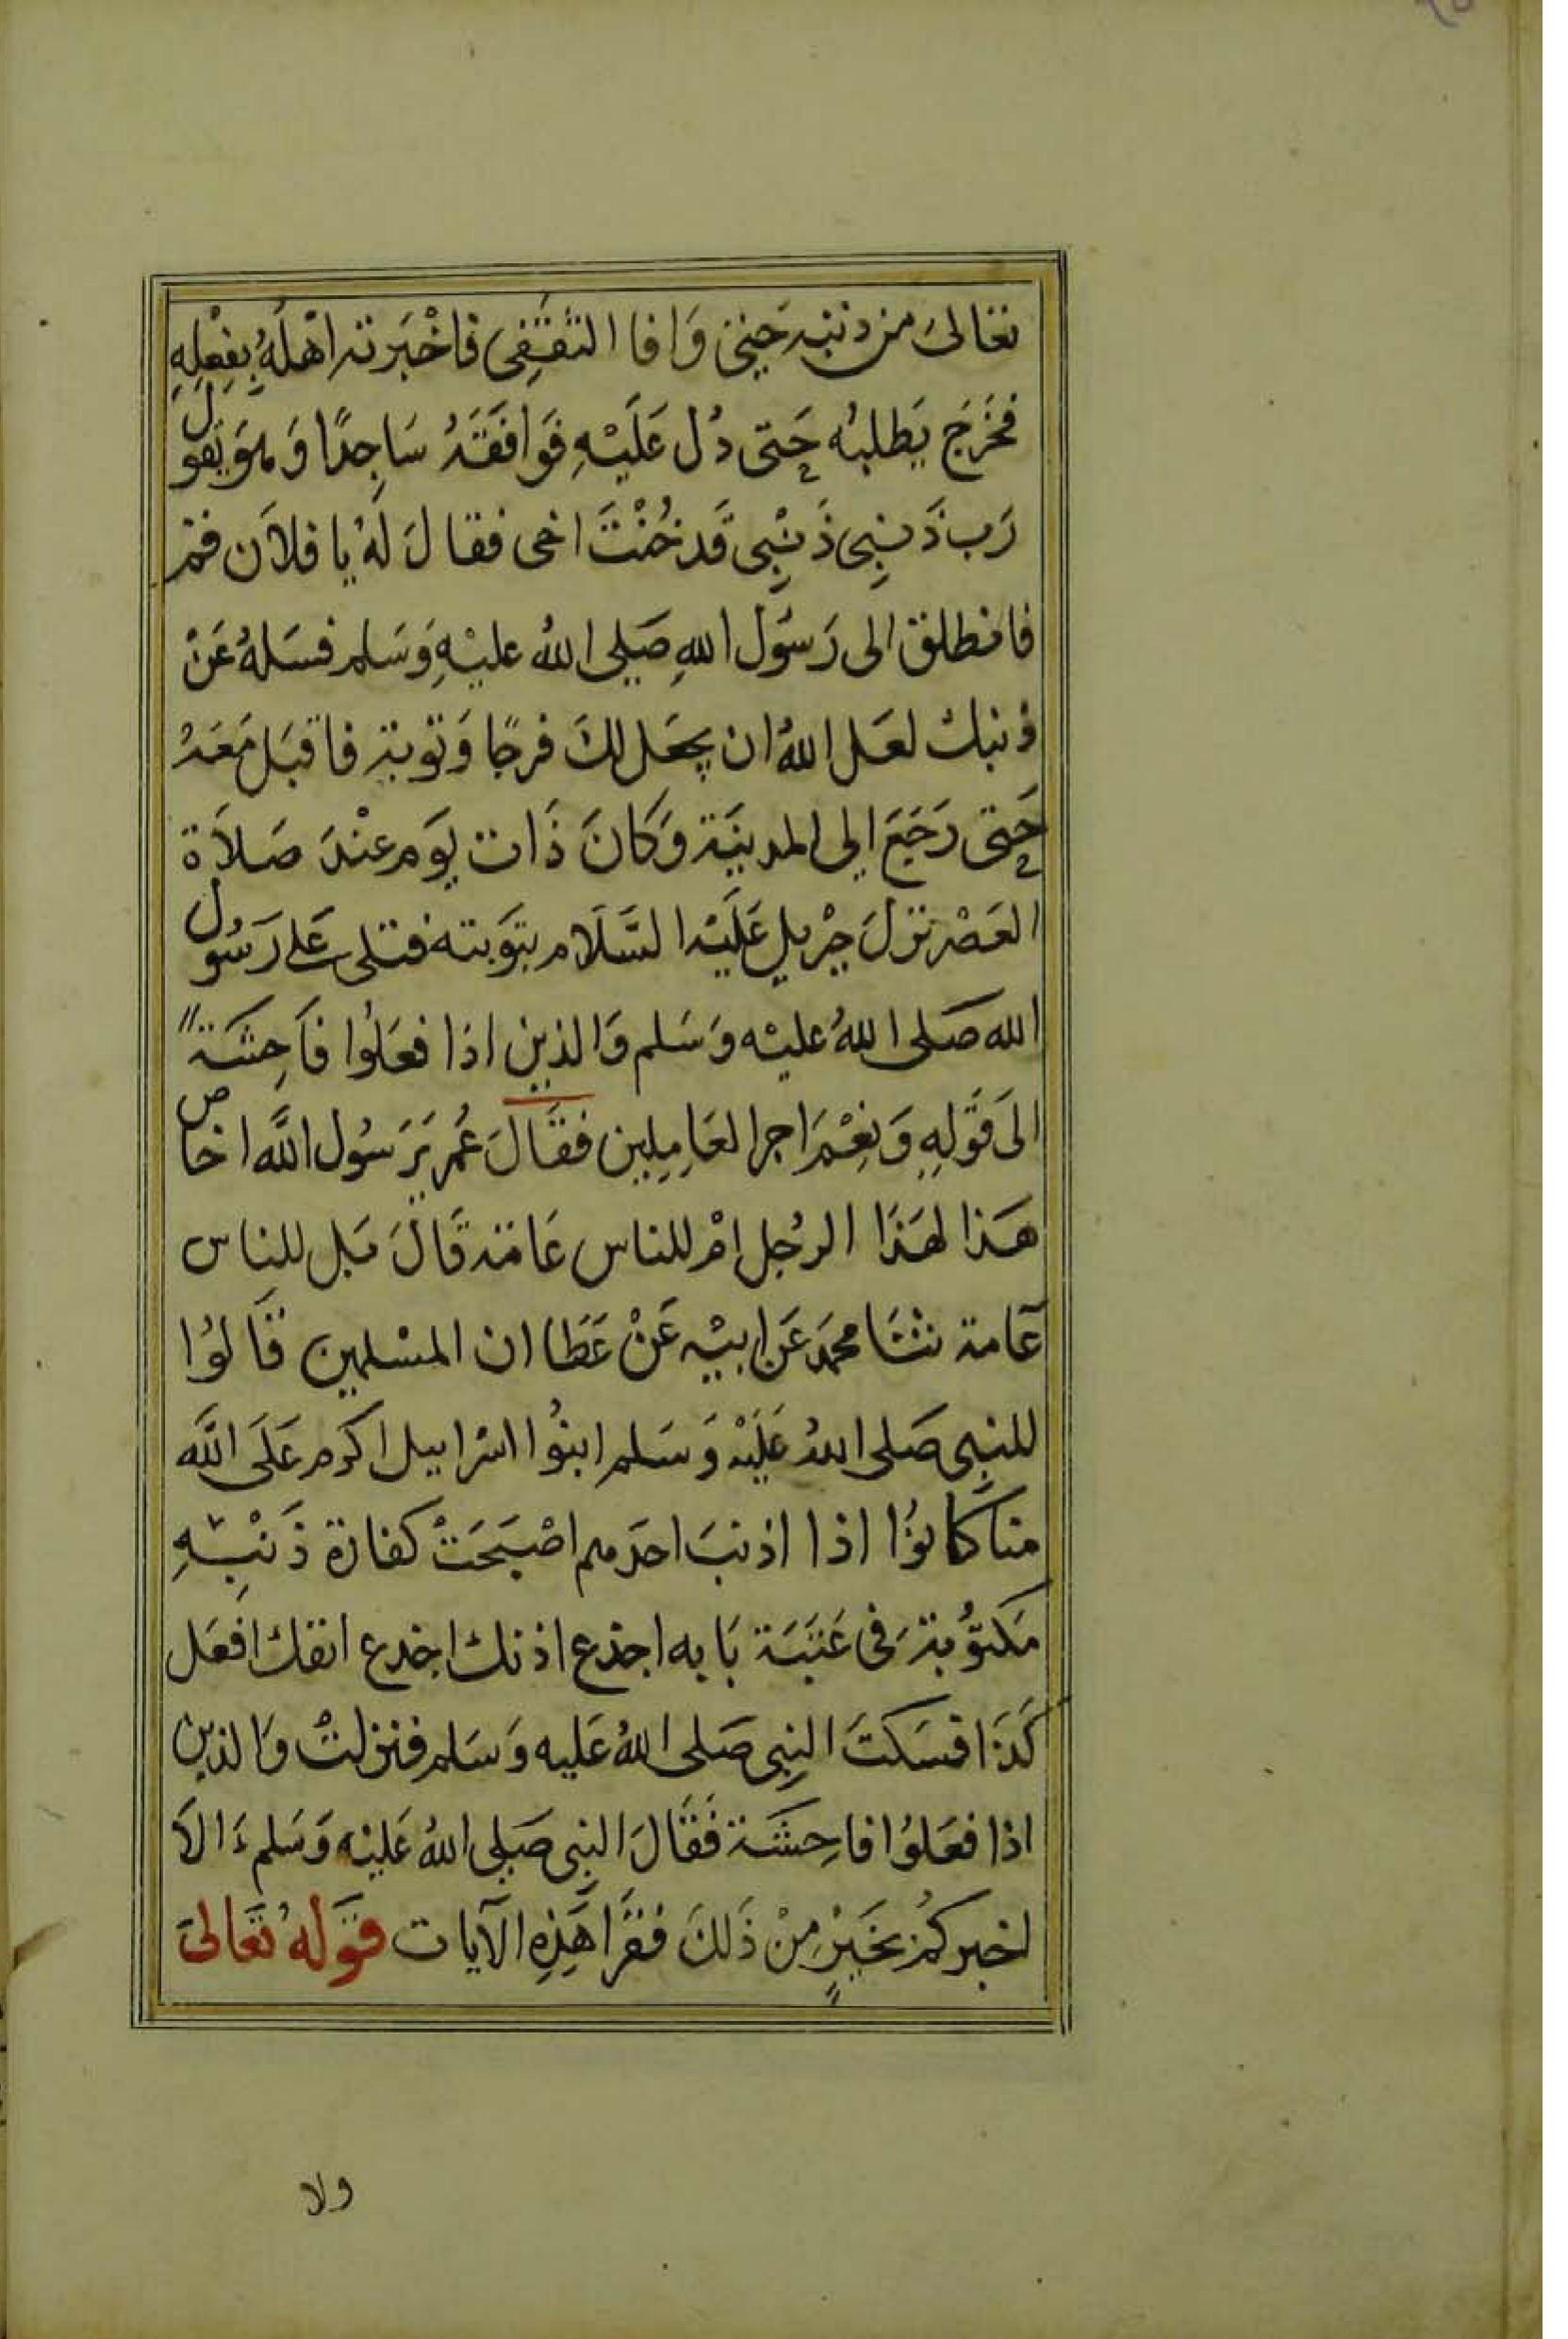 تعالى من ذنبه حينئ وَافا الثقفِى فاخْبَرته اهْلهُ بِفِعْلِهِ
فخرَجَ يَطلبُه حَتى دُل عَلَيْهِ فوَافقهُ سَاجِدًا وَهوَ يَقول
رَب ذَنبِى ذَنْبِى قَد خُنْتَ اخى فقالَ لهُ يا فلاَن قم
فانطلق الى رَسُول اللهِ صَلى اللهُ عليْهِ وَسَلم فسَلهُ عَنْ
ذنبك لعَل اللهُ ان يجعَل لكَ فرجًا وَتوبة فاقبَل مَعَهُ
حَتى رَجَعَ الى المدينَة وَكانَ ذَات يَوم عنْدَ صَلاَة
العَصْر نزلَ جِبْريل عَلَيْه السَّلاَم بتوَبته فتلى عَلى رَسُول
الله صَلى اللهُ عليْه وَسَلم وَالذين اذا فعَلوُا فاَحِشَة
الىَ قَولِهِ وَنِعْمَ اجر العَامِلِين فقَالَ عُمر يَرَسُول اللَّه اخاص
هَذا لهَذَا الرجُل امْ للناس عَامَة قَالَ بَل للناس
عَامة نثنَا محمَد عَن ابيْه عَنْ عَطَا ان المسْلمين قَالوُا
للنبِى صَلى اللهُ عَلَيْه وَسَلم ابنُوا اسْرَابيل اكرَم عَلَى اللَّه
منا كانوُا اذا اذنبَ احَدهم اصْبَحَتْ كفارَة ذَنْبِهِ
مَكتوُبة فى عَتبَة بَابه اجذع اذنك اجدع انفك افعَل
كَذَا فسَكتَ النبِى صَلى اللهُ عَليه وَسَلم فنزلتْ وَالذين
اذا فعَلوُا فاحِشَة فَقَالَ النبِى صَلى اللهُ عَليْه وَسَلم ءَالاَ
اخبركمُ بخَيْرٍ مِنْ ذَلكَ فقَرَا هَذِهِ الآيات قَولهُ تَعَالىَ
ولا